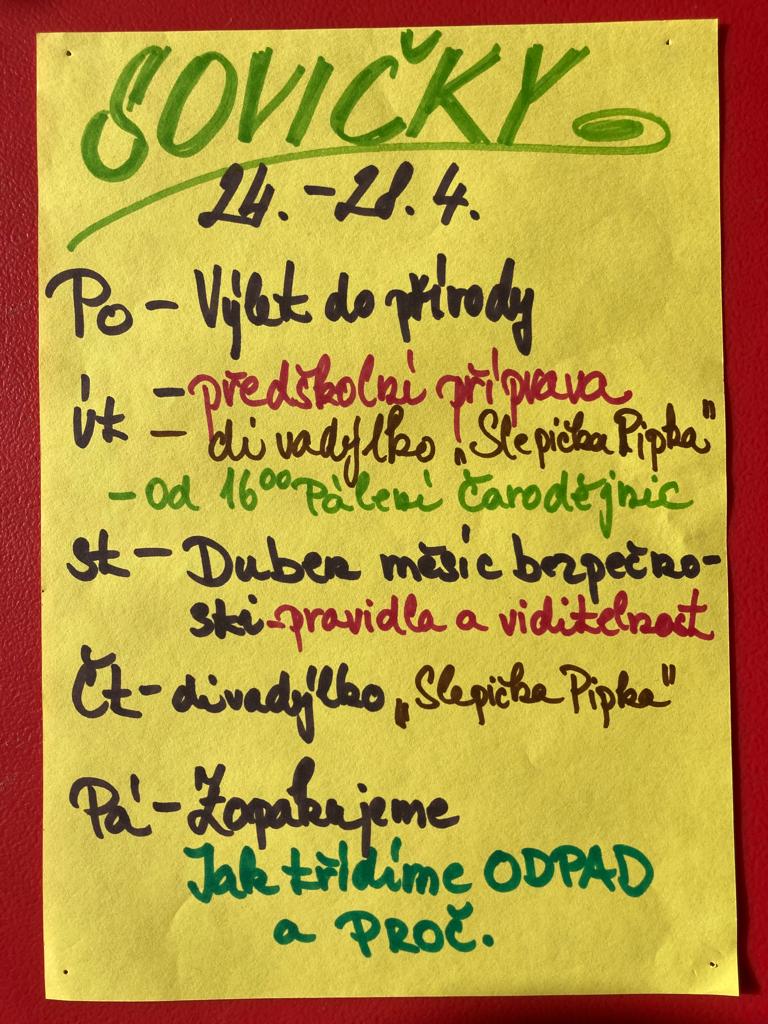 SOVIČKY
24.-28.4.
Po - Výlet do přírody
Út - předškolní příprava
- divadýlko „Slepička Pipka"
- Od 16⁰⁰ Pálení Čarodějnic
St - Duben měsíc bezpečno-
sti - pravidla a viditelnost
Čt - divadýlko „Slepička Pipka"
Pá - Zopakujeme
Jak třídíme ODPAD
a PROČ.